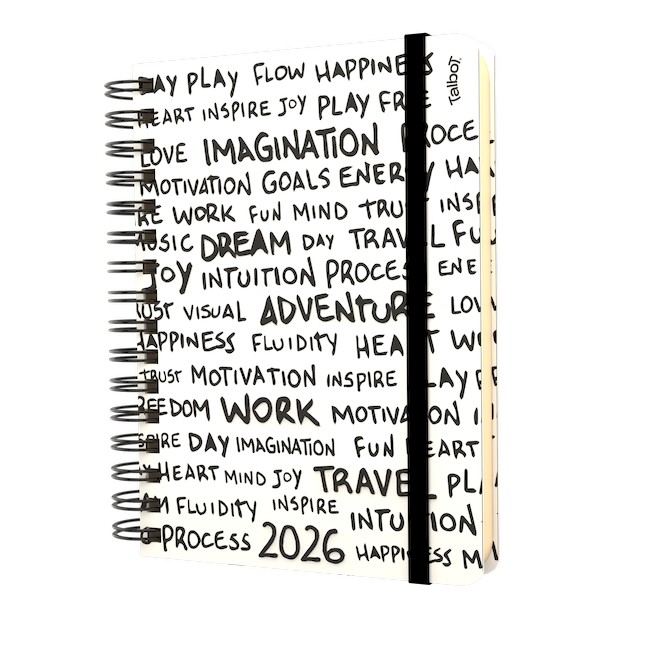 DAY PLAY FLOW HAPPINESS
Talbot
HEART INSPIRE JOY PLAY FREE
LOVE IMAGINATION PROCE
MOTIVATION GOALS ENERGY HA
RE WORK FUN MIND TRUST INSP
MUSIC DREAM DAY TRAVEL FU
JOY INTUITION PROCESS ENE
RUST VISUAL ADVENTURE LOV
HAPPINESS FLUIDITY HEART WO
TRUST MOTIVATION INSPIRE PLAY
REEDOM WORK MOTIVATION
SPIRE DAY IMAGINATION FUN HEART
HEART MIND JOY TRAVEL PLA
AM FLUIDITY INSPIRE INTUITION
PROCESS 2026 HAPPINESS M